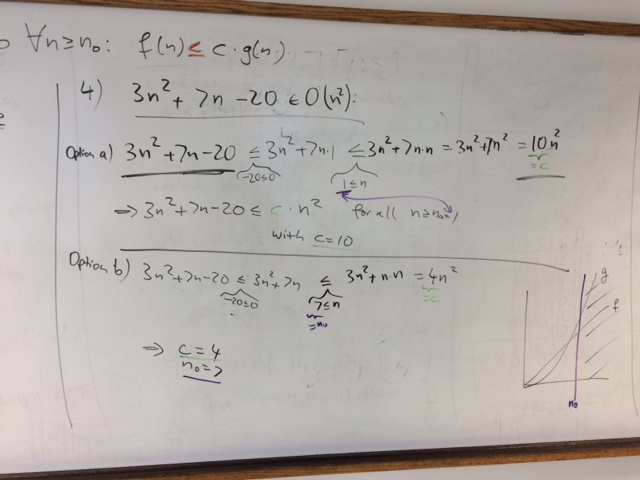 ∀n≥n₀: f(n) ≤ c·g(n)
4) 3n² + 7n - 20 ∈ O(n²):
Option a) 3n²+7n-20 ≤ 3n²+7n·1 ≤ 3n²+7n·n = 3n²+7n² = 10n²
-20≤0 1≤n =c
⇒ 3n²+7n-20 ≤ c·n² for all n≥n₀=1
with c=10
Option b) 3n²+7n-20 ≤ 3n²+7n ≤ 3n²+n·n = 4n²
-20≤0 7≤n =c
=n₀
⇒ c=4
n₀=7
g
f
n₀